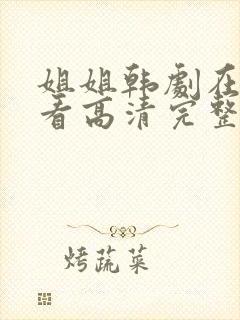 姐姐韩劇在
看高清完整
烤蔬菜